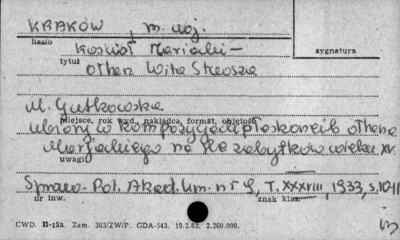 KRAKÓW, m. woj.
hasło
Kościół Mariacki –
sygnatura
tytuł
ołtarz Wita Stwosza
M. Gutkowska
miejsce, rok wyd., nakładca, format, objętość
Ubiory w kompozycjach płaskorzeźb ołtarza
Marjackiego na tle zabytków wieku XV.
uwagi
Spraw. Pol. Akad. Um. nr 9, T. XXXVIII, 1933, s. 10-11
nr inw.
znak klas.
CWD. B-15a. Zam. 363/ZW/P. GDA-543. 19.2.62. 2.260.000.